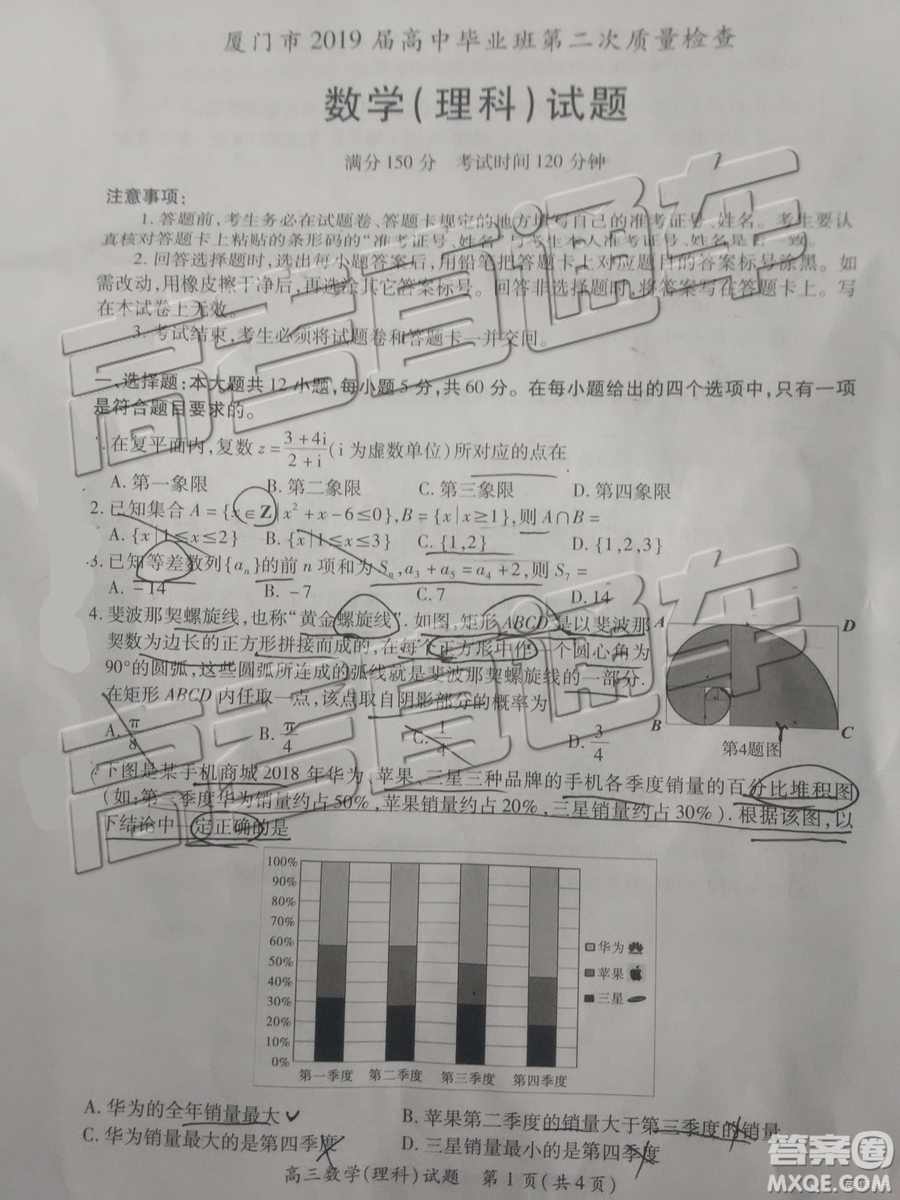 厦门市 2019 届高中毕业班第二次质量检查
数学(理科)试题
满分 150 分 考试时间 120 分钟
注意事项:
1. 答题前,考生务必在试题卷、答题卡规定的地方填写自己的准考证号、姓名。考生要认
真核对答题卡上粘贴的条形码的“准考证号、姓名”与考生本人准考证号、姓名是否一致。
2. 回答选择题时,选出每小题答案后,用铅笔把答题卡上对应题目的答案标号涂黑。如
需改动,用橡皮擦干净后,再选涂其它答案标号。回答非选择题时,将答案写在答题卡上。写
在本试卷上无效。
3. 考试结束,考生必须将试题卷和答题卡一并交回。
一、选择题:本大题共 12 小题,每小题 5 分,共 60 分。在每小题给出的四个选项中,只有一项
是符合题目要求的。
1. 在复平面内,复数 z = (3+4i)/(2+i) (i 为虚数单位)所对应的点在
A. 第一象限 B. 第二象限 C. 第三象限 D. 第四象限
2. 已知集合 A = {x∈Z | x² + x - 6≤0}, B = {x | x≥1}, 则 A∩B =
A. {x | 1≤x≤2} B. {x | 1≤x≤3} C. {1,2} D. {1,2,3}
3. 已知等差数列{aₙ}的前 n 项和为 Sₙ, a₃ + a₅ = a₄ + 2, 则 S₇ =
A. -14 B. -7 C. 7 D. 14
4. 斐波那契螺旋线,也称“黄金螺旋线”. 如图,矩形 ABCD 是以斐波那
契数为边长的正方形拼接而成的,在每个正方形中作一个圆心角为
90°的圆弧,这些圆弧所连成的弧线就是斐波那契螺旋线的一部分.
在矩形 ABCD 内任取一点,该点取自阴影部分的概率为
A. π/8 B. π/4 C. 1/4 D. 3/4
A D
B C
第4题图
下图是某手机商城 2018 年华为、苹果、三星三种品牌的手机各季度销量的百分比堆积图
(如:第三季度华为销量约占 50%,苹果销量约占 20%,三星销量约占 30%). 根据该图,以
下结论中一定正确的是
100%
90%
80%
70%
60%
50%
40%
30%
20%
10%
0%
第一季度 第二季度 第三季度 第四季度
华为
苹果
三星
A. 华为的全年销量最大 B. 苹果第二季度的销量大于第三季度的销量
C. 华为销量最大的是第四季度 D. 三星销量最小的是第四季度
高三数学(理科)试题 第 1 页(共 4 页)
高考直通车
高考直通车
答案卷
MXQE.COM